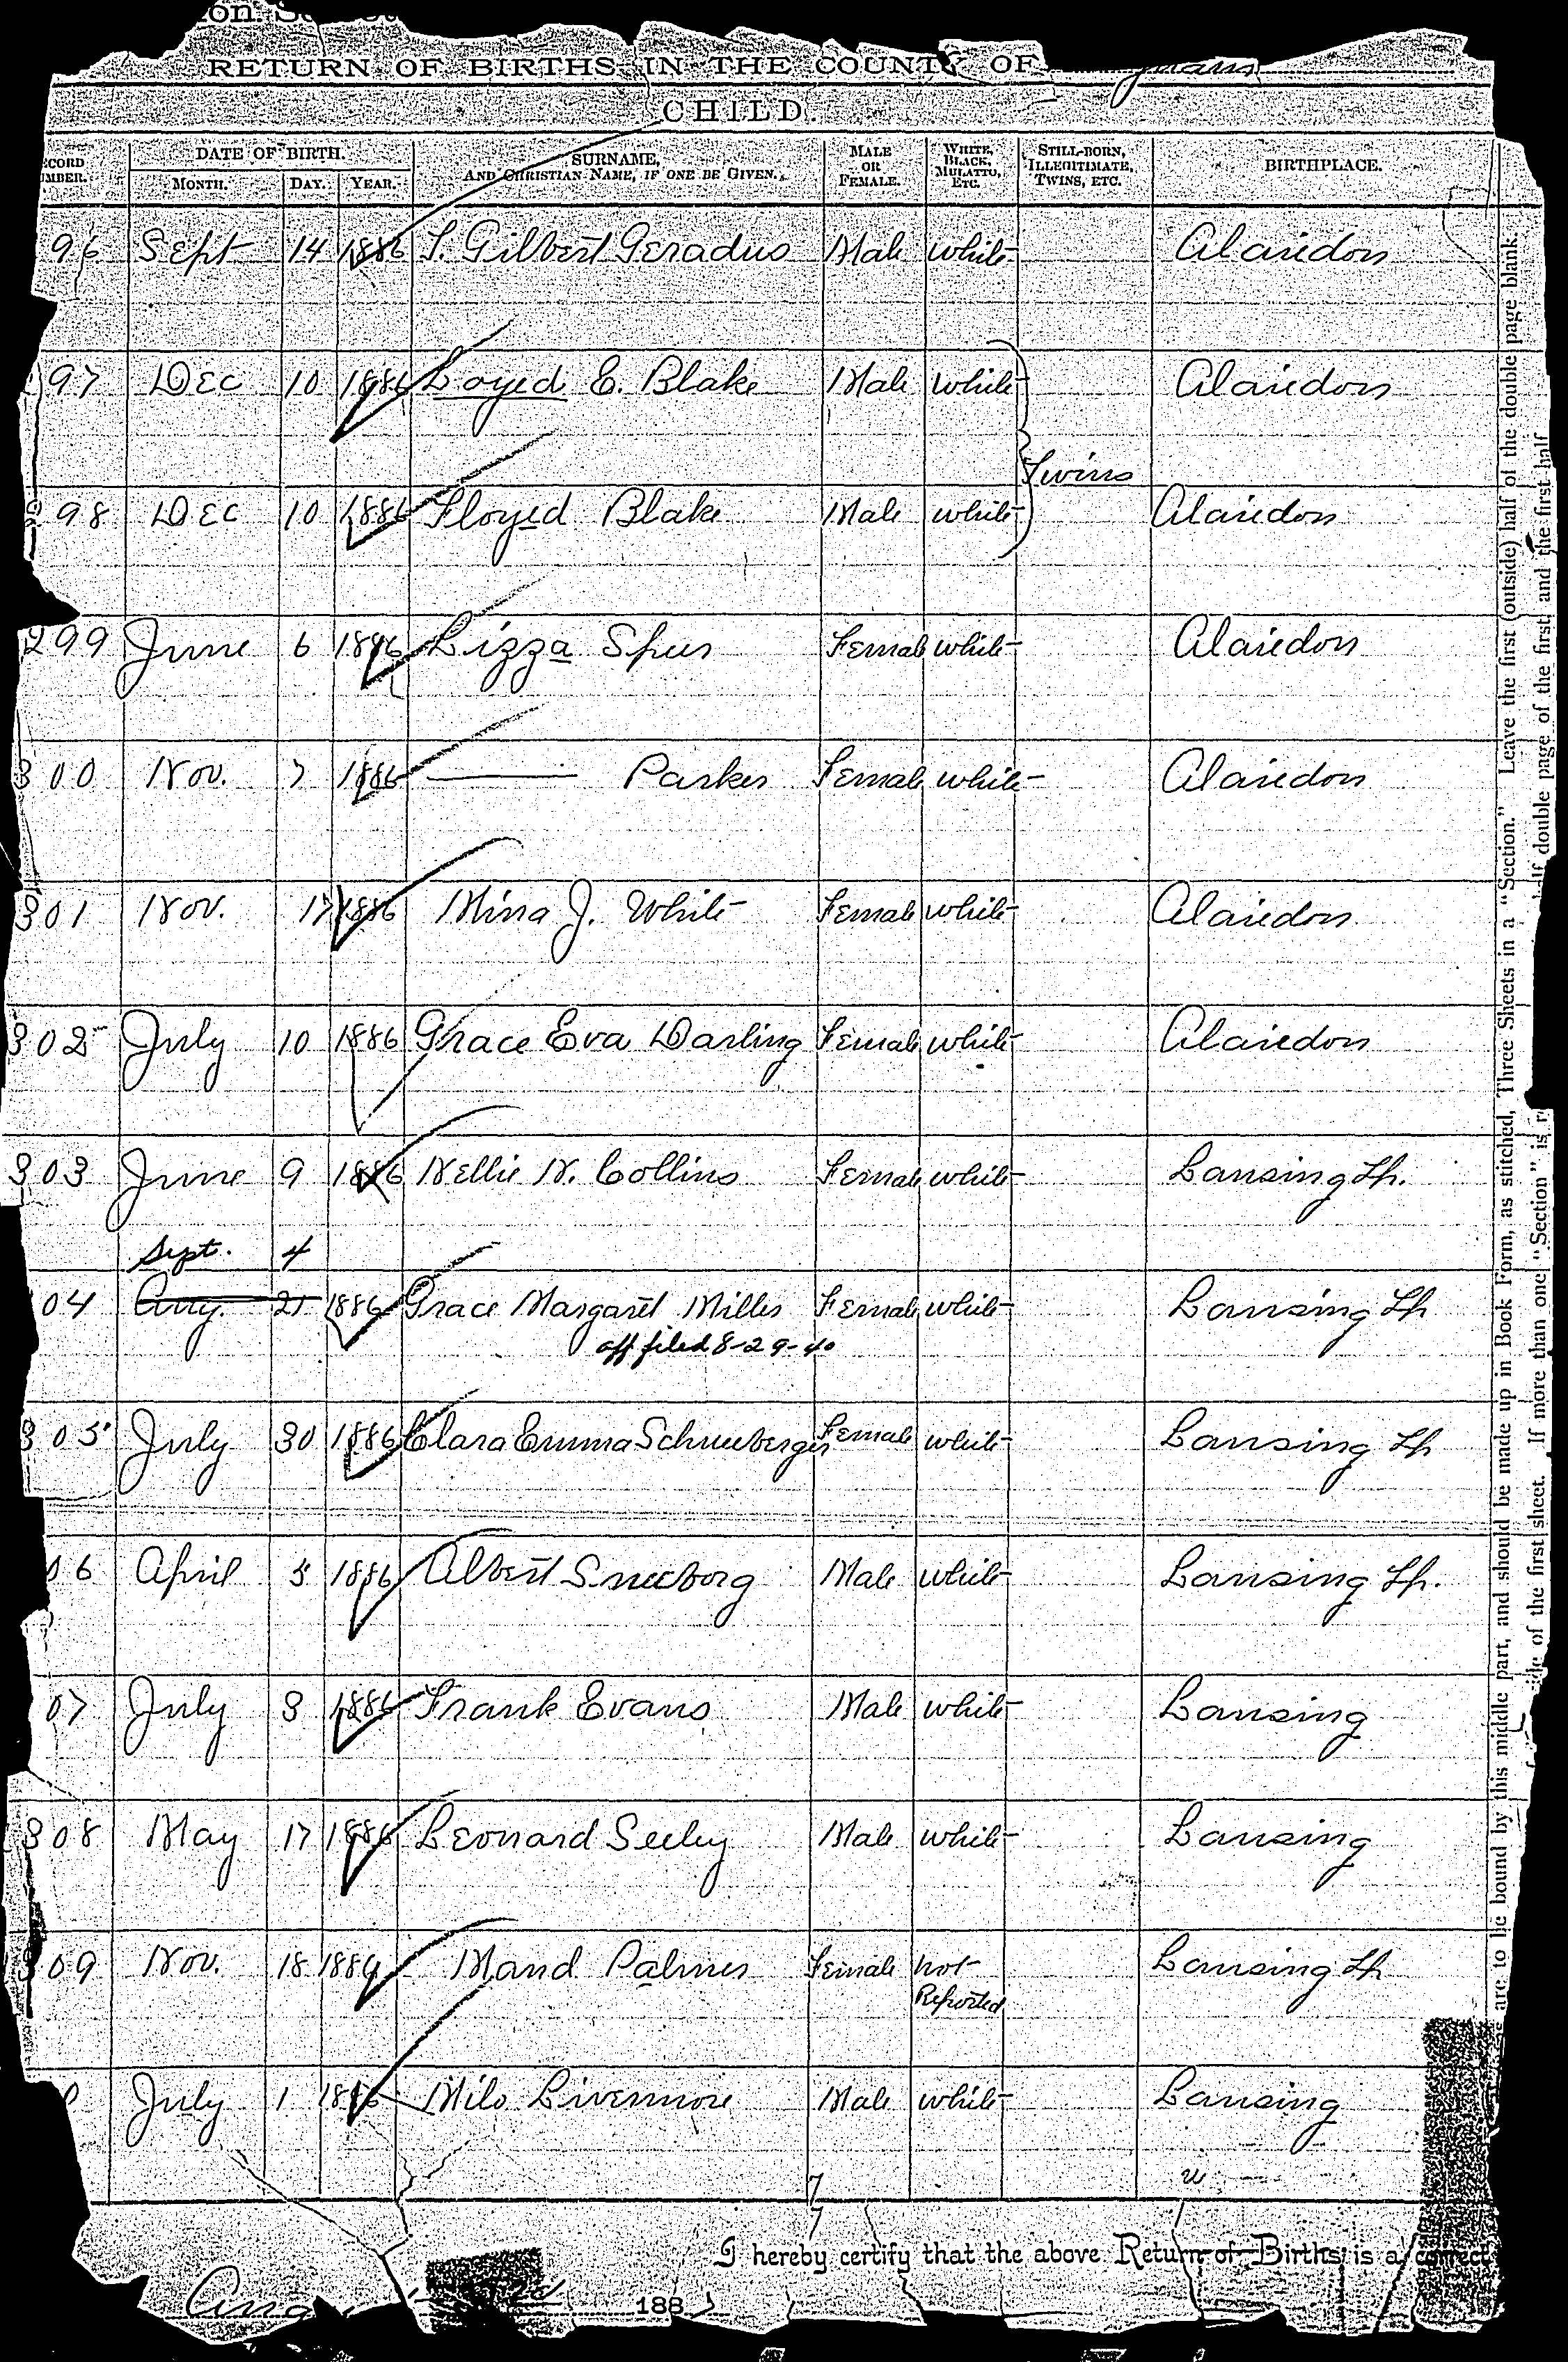 RETURN OF BIRTHS IN THE COUNTY OF
CHILD.
DATE OF BIRTH.
MONTH. DAY. YEAR. SURNAME, AND CHRISTIAN NAME, IF ONE BE GIVEN. MALE OR FEMALE. WHITE, BLACK, MULATTO, ETC. STILL-BORN, ILLEGITIMATE, TWINS, ETC. BIRTHPLACE.
96 Sept 14 1886 T. Gilbert Geradus Male white Alaiedon
97 Dec 10 1886 Loyed E. Blake Male white Alaiedon
Twins
98 Dec 10 1886 Floyed Blake Male white Alaiedon
299 June 6 1886 Lizza Spers Female white Alaiedon
300 Nov. 7 1886 Parker Female white Alaiedon
301 Nov. 17 1886 Mina J. White Female white Alaiedon
302 July 10 1886 Grace Eva Darling Female white Alaiedon
303 June 9 1886 Nellie N. Collins Female white Lansing Tp.
Sept. 4
04 Aug. 21 1886 Grace Margaret Miller Female white Lansing Tp
aff filed 8-29-40
305 July 30 1886 Clara Emma Schneeberger Female white Lansing Tp
06 April 5 1886 Albert Sneeborg Male white Lansing Tp.
07 July 3 1886 Frank Evans Male white Lansing
308 May 17 1886 Leonard Seeley Male white Lansing
309 Nov. 18 1886 Maud Palmer Female not Reported Lansing Tp
July 1 1886 Milo Livermore Male white Lansing
I hereby certify that the above Return of Births is a correct
Aug 188
are to be bound by this middle part, and should be made up in Book Form, as stitched, Three Sheets in a "Section." Leave the first (outside) half of the double page blank.
of the first sheet. If more than one "Section" is
half double page of the first, and the first half